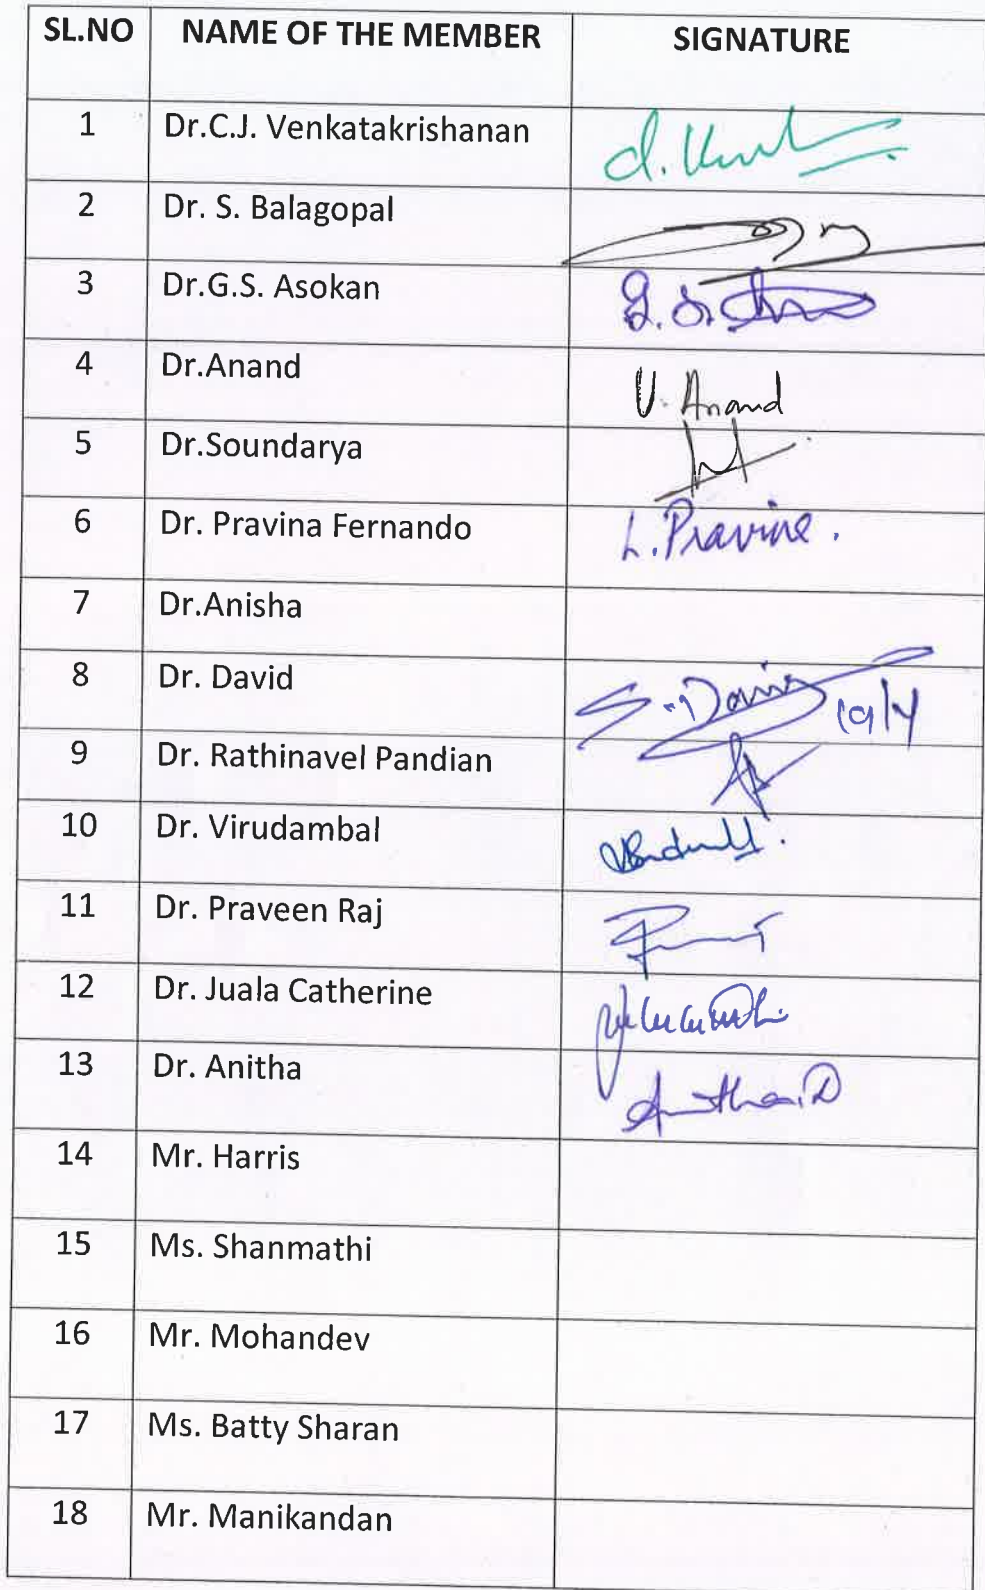 SL.NO NAME OF THE MEMBER SIGNATURE
1 Dr.C.J. Venkatakrishanan
2 Dr. S. Balagopal
3 Dr.G.S. Asokan
4 Dr.Anand U. Anand
5 Dr.Soundarya
6 Dr. Pravina Fernando L. Pravine.
7 Dr.Anisha
8 Dr. David 19/4
9 Dr. Rathinavel Pandian
10 Dr. Virudambal
11 Dr. Praveen Raj
12 Dr. Juala Catherine
13 Dr. Anitha
14 Mr. Harris
15 Ms. Shanmathi
16 Mr. Mohandev
17 Ms. Batty Sharan
18 Mr. Manikandan